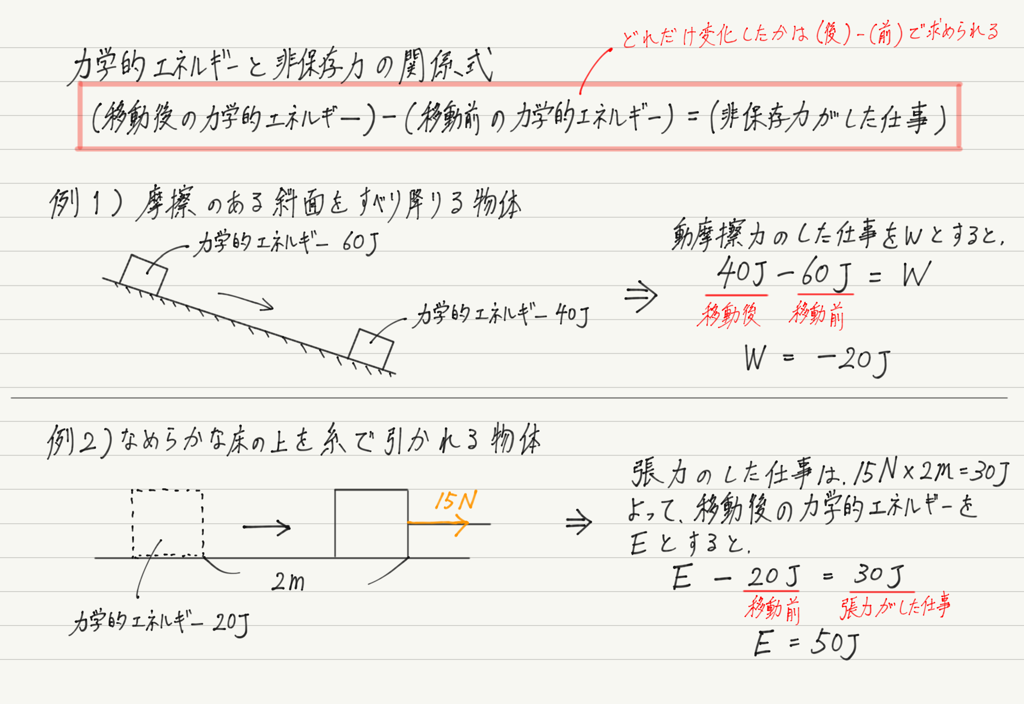 どれだけ変化したかは(後)-(前)で求められる
力学的エネルギーと非保存力の関係式
(移動後の力学的エネルギー)-(移動前の力学的エネルギー)=(非保存力がした仕事)
例1)摩擦のある斜面をすべり降りる物体
力学的エネルギー60J
力学的エネルギー40J
動摩擦力のした仕事をWとすると,
⇒ 40J-60J=W
移動後 移動前
W=-20J
例2)なめらかな床の上を糸で引かれる物体
15N
2m
力学的エネルギー20J
張力のした仕事は,15N×2m=30J
⇒ よって,移動後の力学的エネルギーを
Eとすると,
E-20J=30J
移動前 張力がした仕事
E=50J